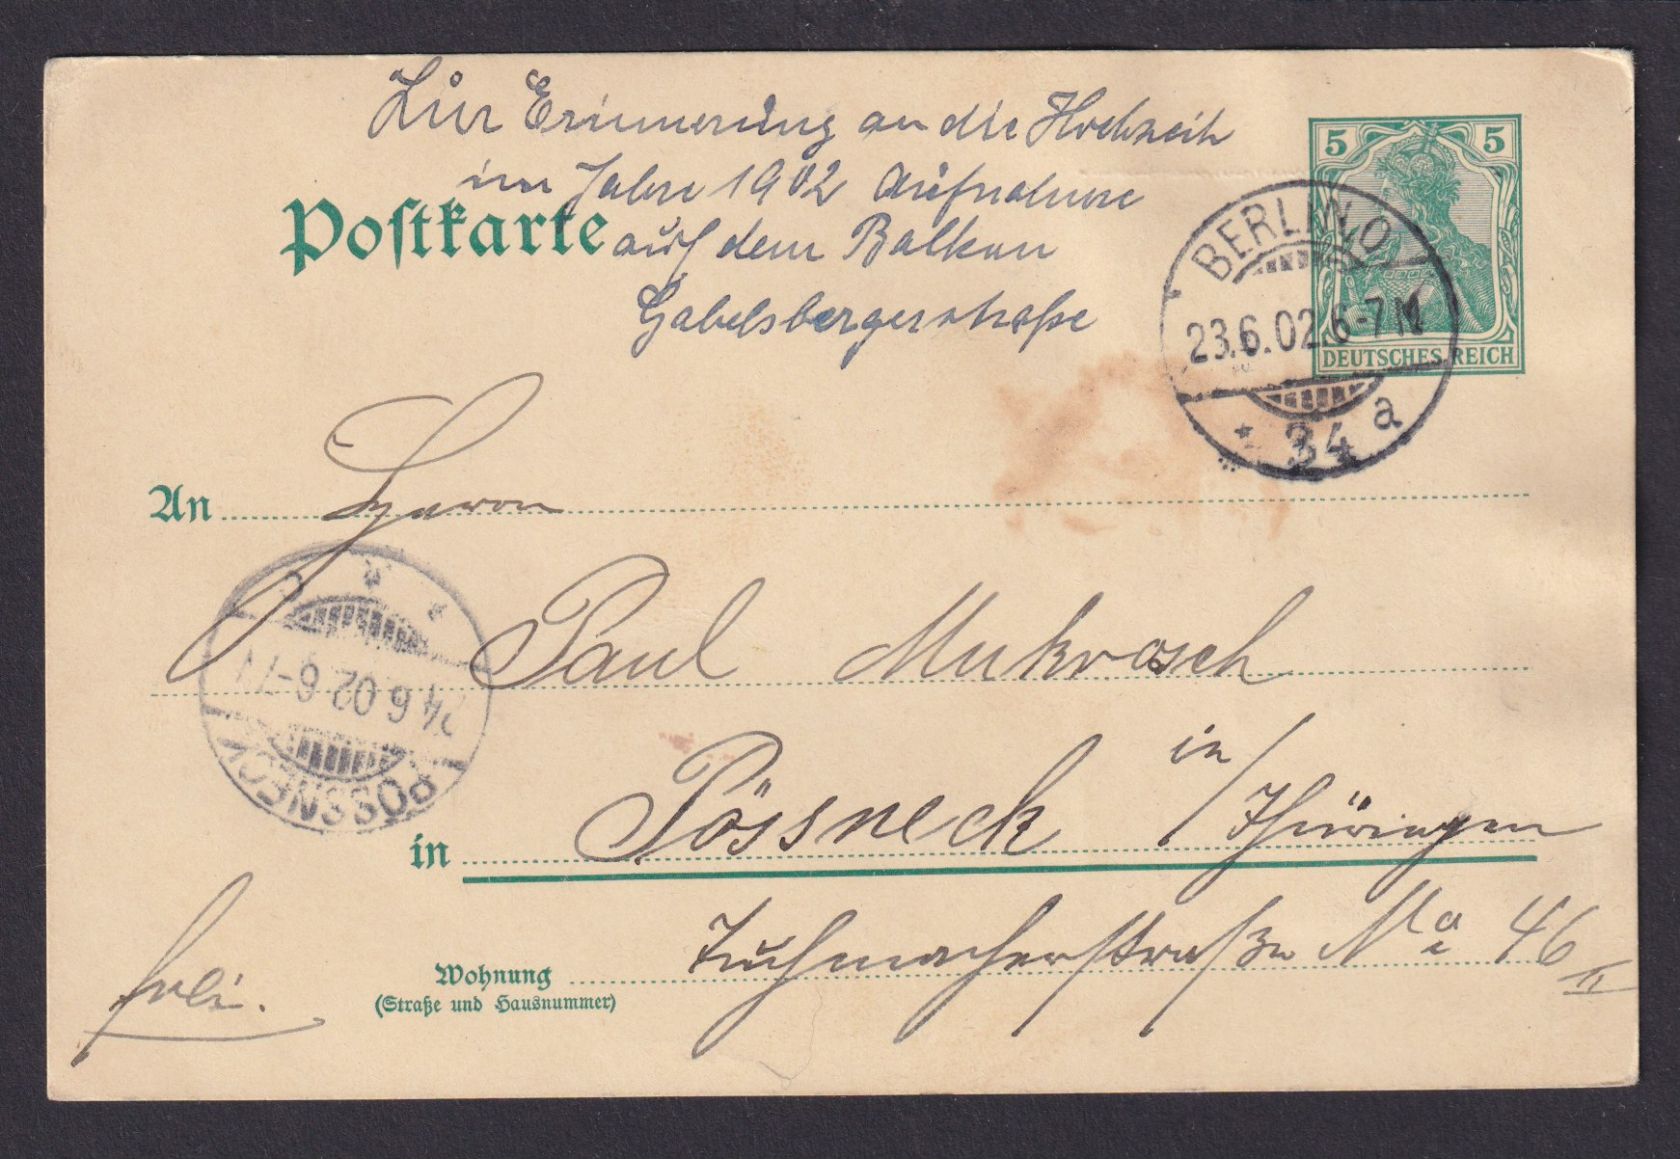 Zur Erinnerung an die Hochzeit
im Jahre 1902 Aufnahme
Postkarte auf dem Balkon
Gabelsbergerstraße
5 5
DEUTSCHES REICH
BERLIN, O.
23.6.02. 6-7 N
* 34 a
An Herrn
Paul Mukrasch
24 6 02 6-7
PÖSSNECK
in Pössneck in/Thüringen
Wohnung Tuchmacherstraße No 46 II
(Straße und Hausnummer)
frei.